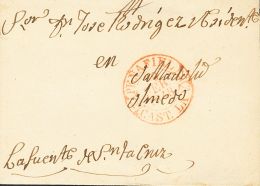 Sor Dn Jose Rodrigez Residente
en
Valladolid
Olmedo
PEÑAFIEL
CAST. LA
La fuente de Santa Cruz